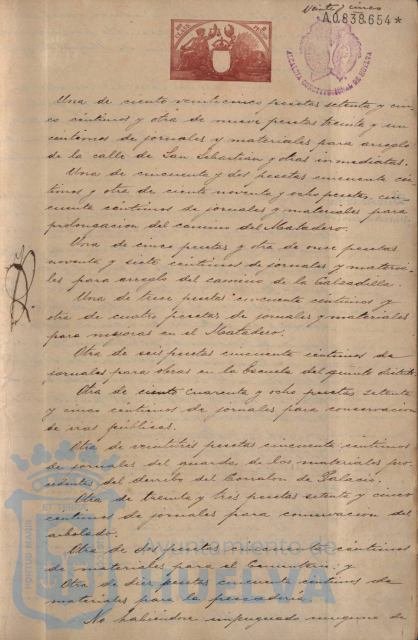 Veinte y cinco
A0.838.654*
ALCALDIA CONSTITUCIONAL DE HUELVA
Una de ciento veinticinco pesetas setenta y cin-
co céntimos y otra de nueve pesetas treinta y un
céntimos de jornales y materiales para arreglo
de la calle de San Sebastian y otras inmediatas.
Una de cincuenta y dos pesetas cincuenta cén-
timos y otra de ciento noventa y ocho pesetas cin-
cuenta céntimos de jornales y materiales para
prolongacion del camino del Matadero.
Una de cinco pesetas y otra de once pesetas
noventa y siete céntimos de jornales y materia-
les para arreglo del camino de la Calzadilla.
Una de trece pesetas cincuenta céntimos y
otra de cuatro pesetas de jornales y materiales
para mejoras en el Matadero.
Otra de seis pesetas cincuenta céntimos de
jornales para obras en la Escuela del quinto distrito.
Otra de ciento cuarenta y ocho pesetas setenta
y cinco céntimos de jornales para conservacion
de vias públicas.
Otra de veintitres pesetas cincuenta céntimos
de jornales del guarda de los materiales pro-
cedentes del derribo del Corralon de Palacio.
Otra de treinta y tres pesetas setenta y cinco
céntimos de jornales para conservacion del
arbolado.
Otra de dos pesetas cincuenta céntimos
de materiales para el Cementerio; y
Otra de diez pesetas cincuenta céntimos de
materiales para la pescadería.
No habiéndose impugnado ninguna de
Ayuntamiento de
HUELVA